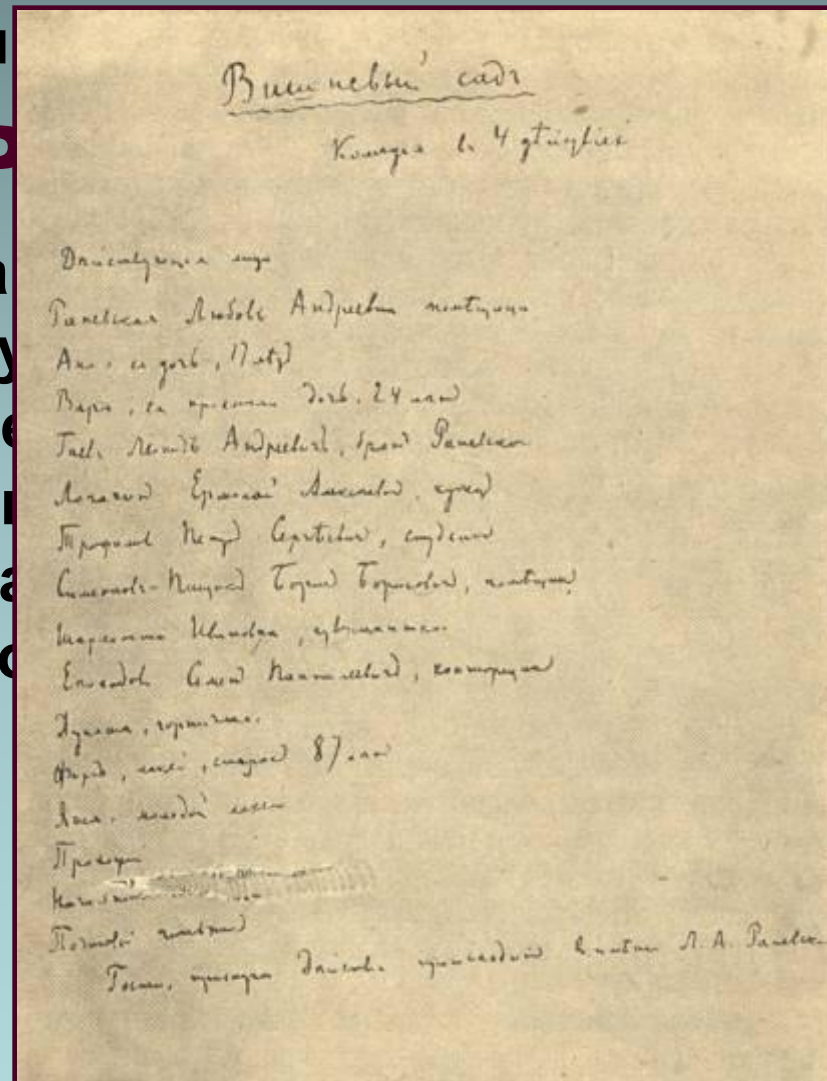 Вишневый садъ
Комедія въ 4 дѣйствіяхъ
Дѣйствующія лица
Раневская Любовь Андреевна помѣщица
Аня, ея дочь, 17 лѣтъ
Варя, ея пріемная дочь, 24 лѣтъ
Гаевъ Леонидъ Андреевичъ, братъ Раневской
Лопахинъ Ермолай Алексѣевичъ, купецъ
Трофимовъ Петръ Сергѣевичъ, студентъ
Симеоновъ-Пищикъ Борисъ Борисовичъ, помѣщикъ
Шарлотта Ивановна, гувернантка
Епиходовъ Семенъ Пантелеевичъ, конторщикъ
Дуняша, горничная.
Фирсъ, лакей, старикъ 87 лѣтъ
Яша, молодой лакей
Прохожій
Почтовый чиновникъ
Гости, прислуга
Дѣйствіе происходитъ въ имѣніи Л. А. Раневской